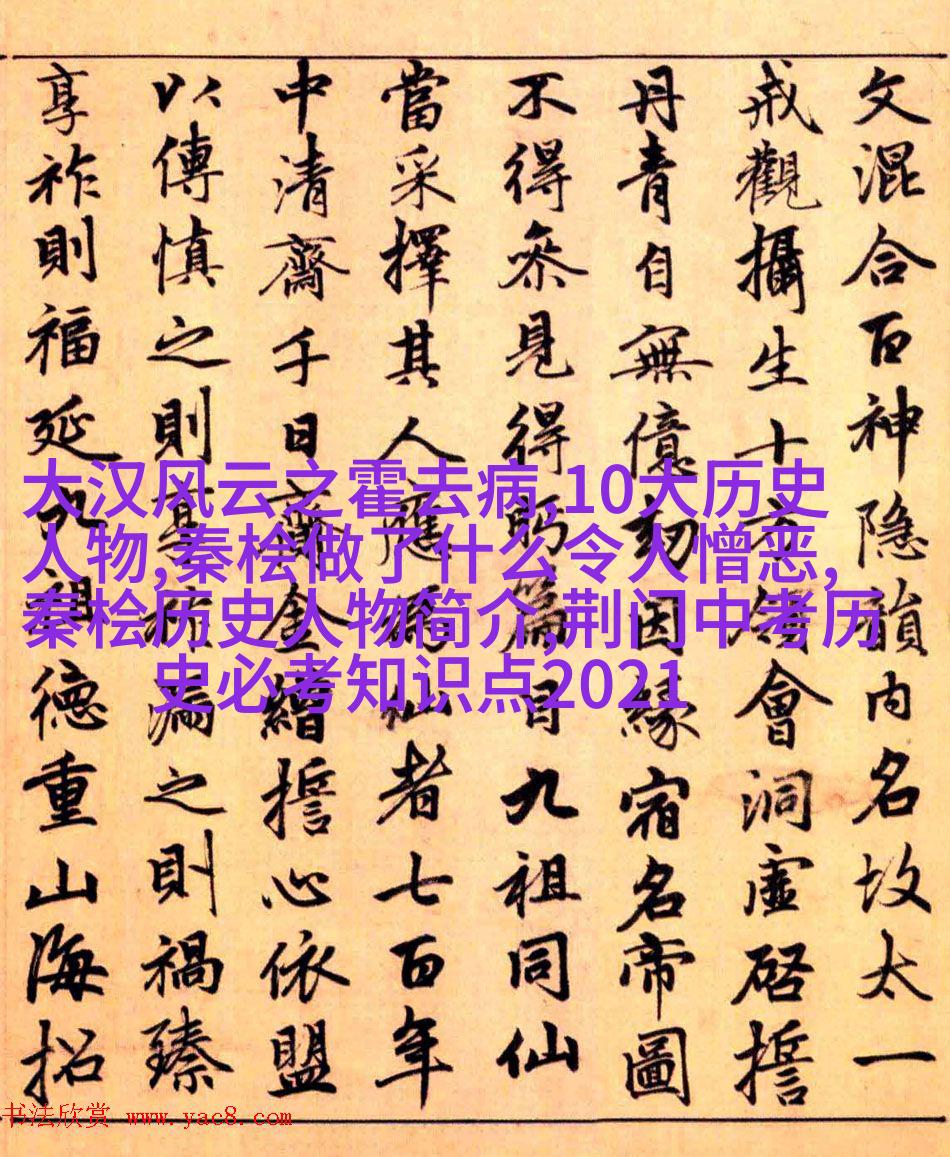 大汉风云之霍去病,10大历史
人物,秦桧做了什么令人憎恶,
秦桧历史人物简介,荆门中考历
史必考知识点2021
文混合百神隐韻内名故太一
戒觀攝生十方會洞虛啓誓
丹青自無億劫因緣宿名帝圖
不得叅見得篇目九祖同仙
當采擇其人應仙者七百年
中清齋千日齎金繒誓心依盟
以傳慎之則漏之則禍臻
享祚則福延九祖德重山海招
书法欣赏 www.yac8.com